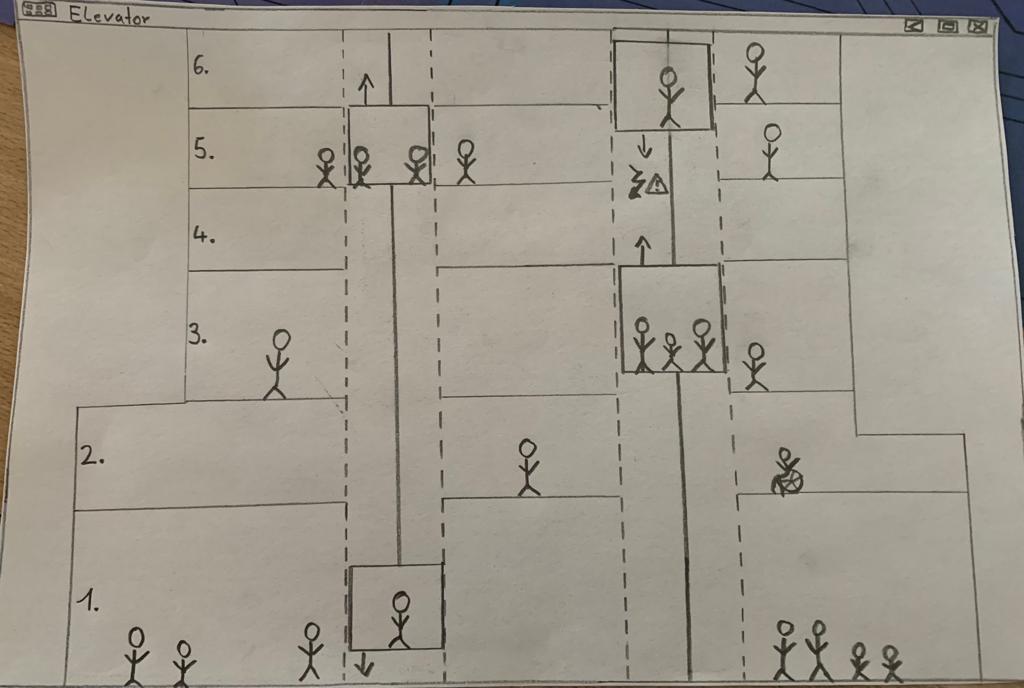 Elevator
6.
5.
4.
3.
2.
1.